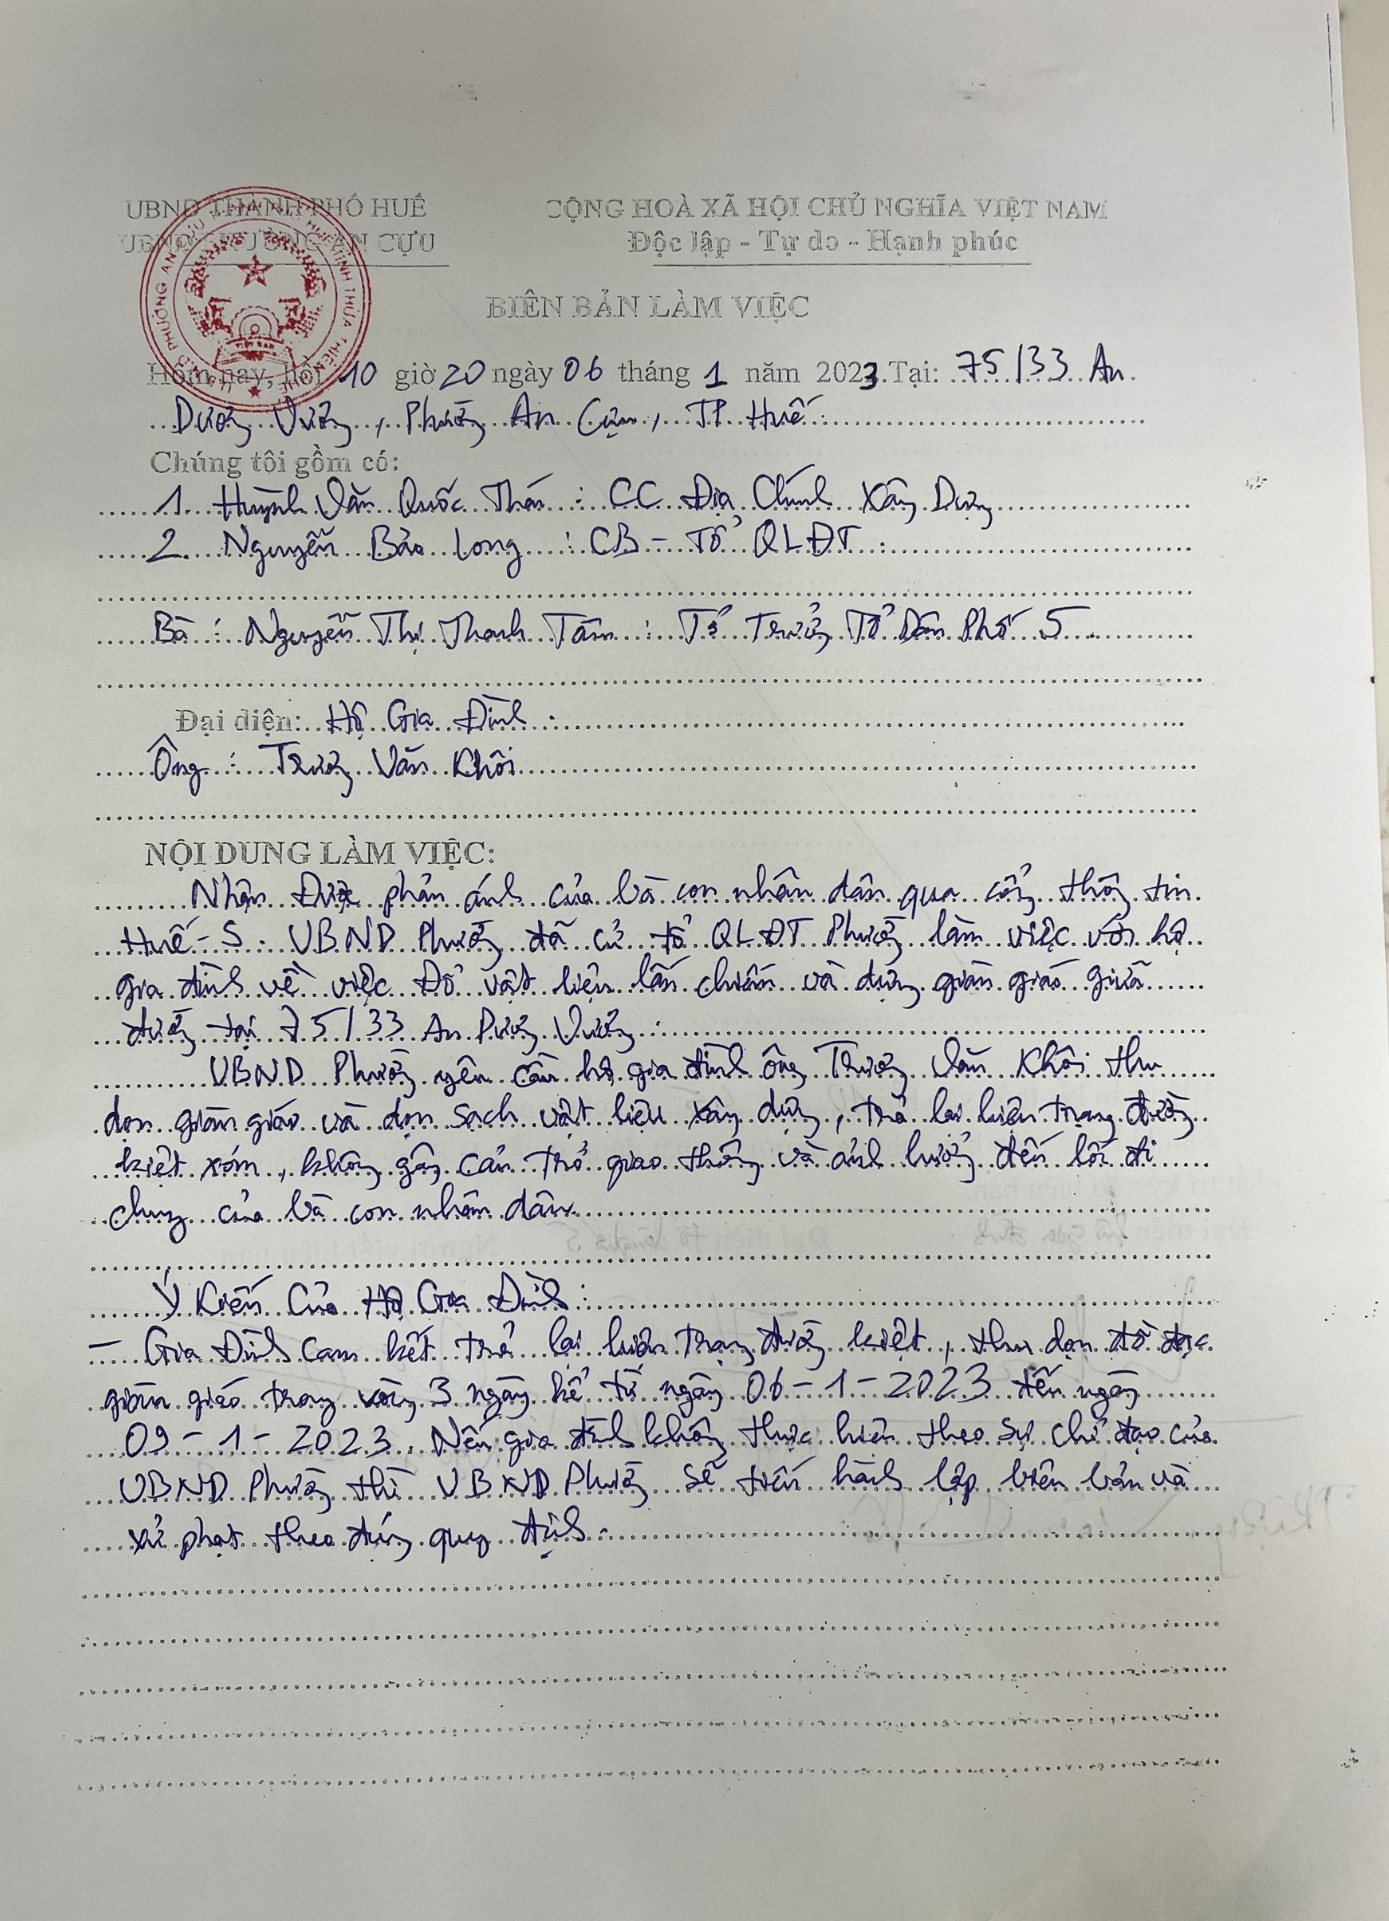 UBND THÀNH PHỐ HUẾ
UBND PHƯỜNG AN CỰU
CỘNG HOÀ XÃ HỘI CHỦ NGHĨA VIỆT NAM
Độc lập - Tự do - Hạnh phúc
BIÊN BẢN LÀM VIỆC
Hôm nay, hồi 10 giờ 20 ngày 06 tháng 1 năm 2023. Tại: 75/33 An
Dương Vương, Phường An Cựu, TP Huế.
Chúng tôi gồm có:
1. Huỳnh Văn Quốc Thái : CC Địa Chính Xây Dựng
2. Nguyễn Bảo Long : CB - Tổ QLĐT.
Bà : Nguyễn Thị Thanh Tâm : Tổ Trưởng Tổ Dân Phố 5
Đại diện: Hộ Gia Đình.
Ông : Trương Văn Khôi
NỘI DUNG LÀM VIỆC:
Nhận Được phản ánh của bà con nhân dân qua cổng thông tin
Huế-S. UBND Phường đã cử tổ QLĐT Phường làm việc với hộ
gia đình về việc Đổ vật liệu lấn chiếm và dựng giàn giáo giữa
đường tại 75/33 An Dương Vương.
UBND Phường yêu cầu hộ gia đình ông Trương Văn Khôi thu
dọn giàn giáo và dọn sạch vật liệu xây dựng, trả lại hiện trạng đường
kiệt xóm, không gây cản trở giao thông và ảnh hưởng đến lối đi
chung của bà con nhân dân.
Ý Kiến Của Hộ Gia Đình :
- Gia Đình cam kết trả lại hiện trạng đường kiệt, thu dọn đồ đạc
giàn giáo trong vòng 3 ngày kể từ ngày 06-1-2023 đến ngày
09-1-2023. Nếu gia đình không thực hiện theo sự chỉ đạo của
UBND Phường thì UBND Phường sẽ tiến hành lập biên bản và
xử phạt theo đúng quy định.